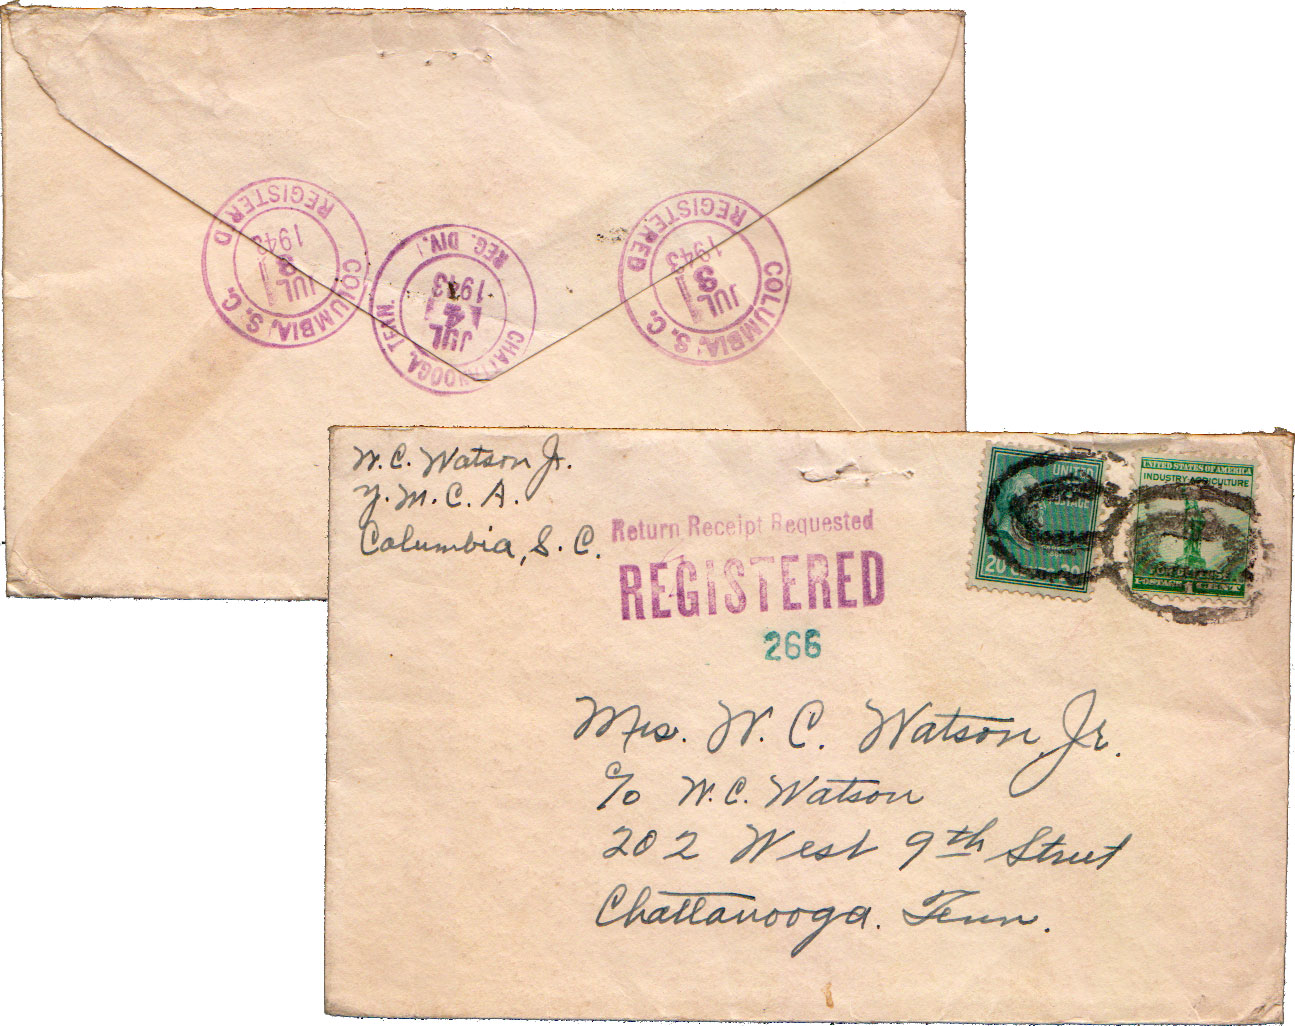 REGISTERED
COLUMBIA, S. C.
JUL
3
1943
REG. DIV.
CHATTANOOGA, TENN.
JUL
4
1943
REGISTERED
COLUMBIA, S. C.
JUL
3
1943
W. C. Watson Jr.
Y. M. C. A.
Columbia, S. C.
Return Receipt Requested
REGISTERED
266
UNITED
POSTAGE
20
UNITED STATES OF AMERICA
INDUSTRY AGRICULTURE
FOR DEFENSE
POSTAGE 1 CENT
Mrs. W. C. Watson, Jr.
c/o W. C. Watson
202 West 9th Street
Chattanooga. Tenn.